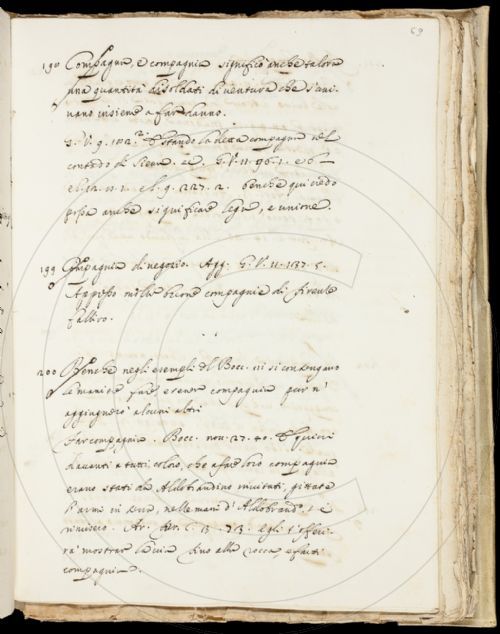 69
190 Compagna, e compagnia significò anche talora
una quantità di soldati di ventura che s'uni-
vano insieme a far danno.
G. V. 9. 182. Estando la detta compagna nel
contado di Siena. G. V. 11. 96. 1. e 6
e l. 9. 227. 2. benche qui credo
possa anche significare lega, e unione.
199 Compagnia di negozio. Agg. G. V. 11. 137. 5.
Appresso molte buone compagnie di firenze
fallirò.
200 Benche negli esempli del Bocc. vi si contengano
le maniere fare e tener compagnia pur n'
aggiugnerò alcuni altri
Far compagnia. Bocc. nov. 27. 40. E quivi
davanti a tutti coloro, che a fare loro compagnia
erano stati da Aldobrandino invitati, gittate
l'armi in terra, nelle mani d'Aldobrand. si
rimisero. Ar. Fur. C. 13. 73. egli s'offeri-
rà mostrar la via fino alla rocca, e farti
compagnia.